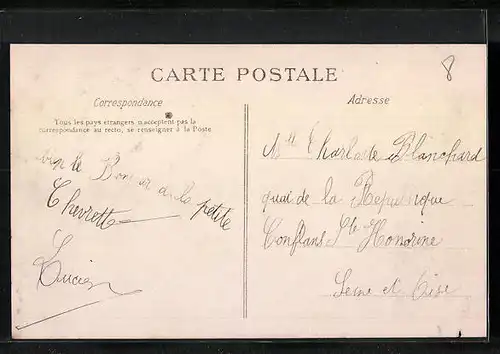 8
CARTE POSTALE
Correspondance
Tous les pays étrangers n'acceptent pas la
correspondance au recto, se renseigner à la Poste
Bonjour de la petite
Chevrette
Lucien
Adresse
Mlle Charlotte Blanchard
quai de la République
Conflans Ste Honorine
Seine et Oise